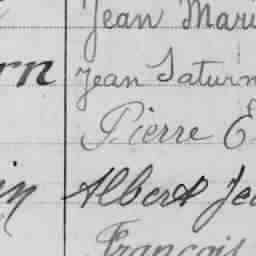 Jean Mari
rn Jean Saturn
Pierre E
in Albert Je
François